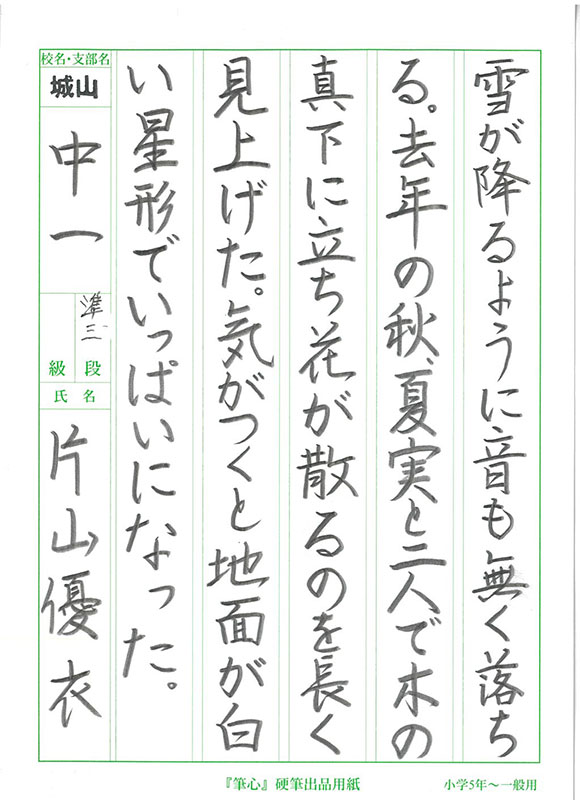 雪が降るように音も無く落ち
る。去年の秋、夏実と二人で木の
真下に立ち花が散るのを長く
見上げた。気がつくと地面が白
い星形でいっぱいになった。
校名・支部名
城山
中一
準三
段
級
氏名
片山優衣
『筆心』硬筆出品用紙
小学5年〜一般用